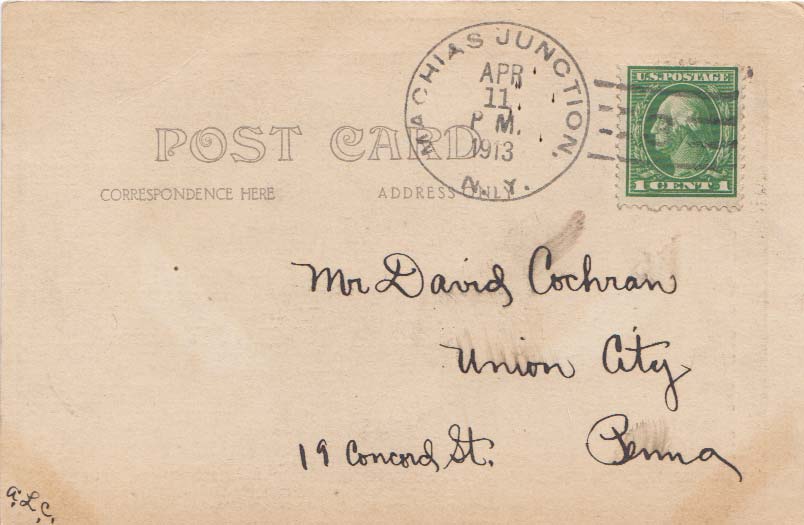 MACHIAS JUNCTION,
APR
11
P M.
1913
N.Y.
U.S. POSTAGE
1 CENT 1
POST CARD
CORRESPONDENCE HERE
ADDRESS ONLY
Mr David Cochran
Union City
19 Concord St.
Penna
a.L.C.